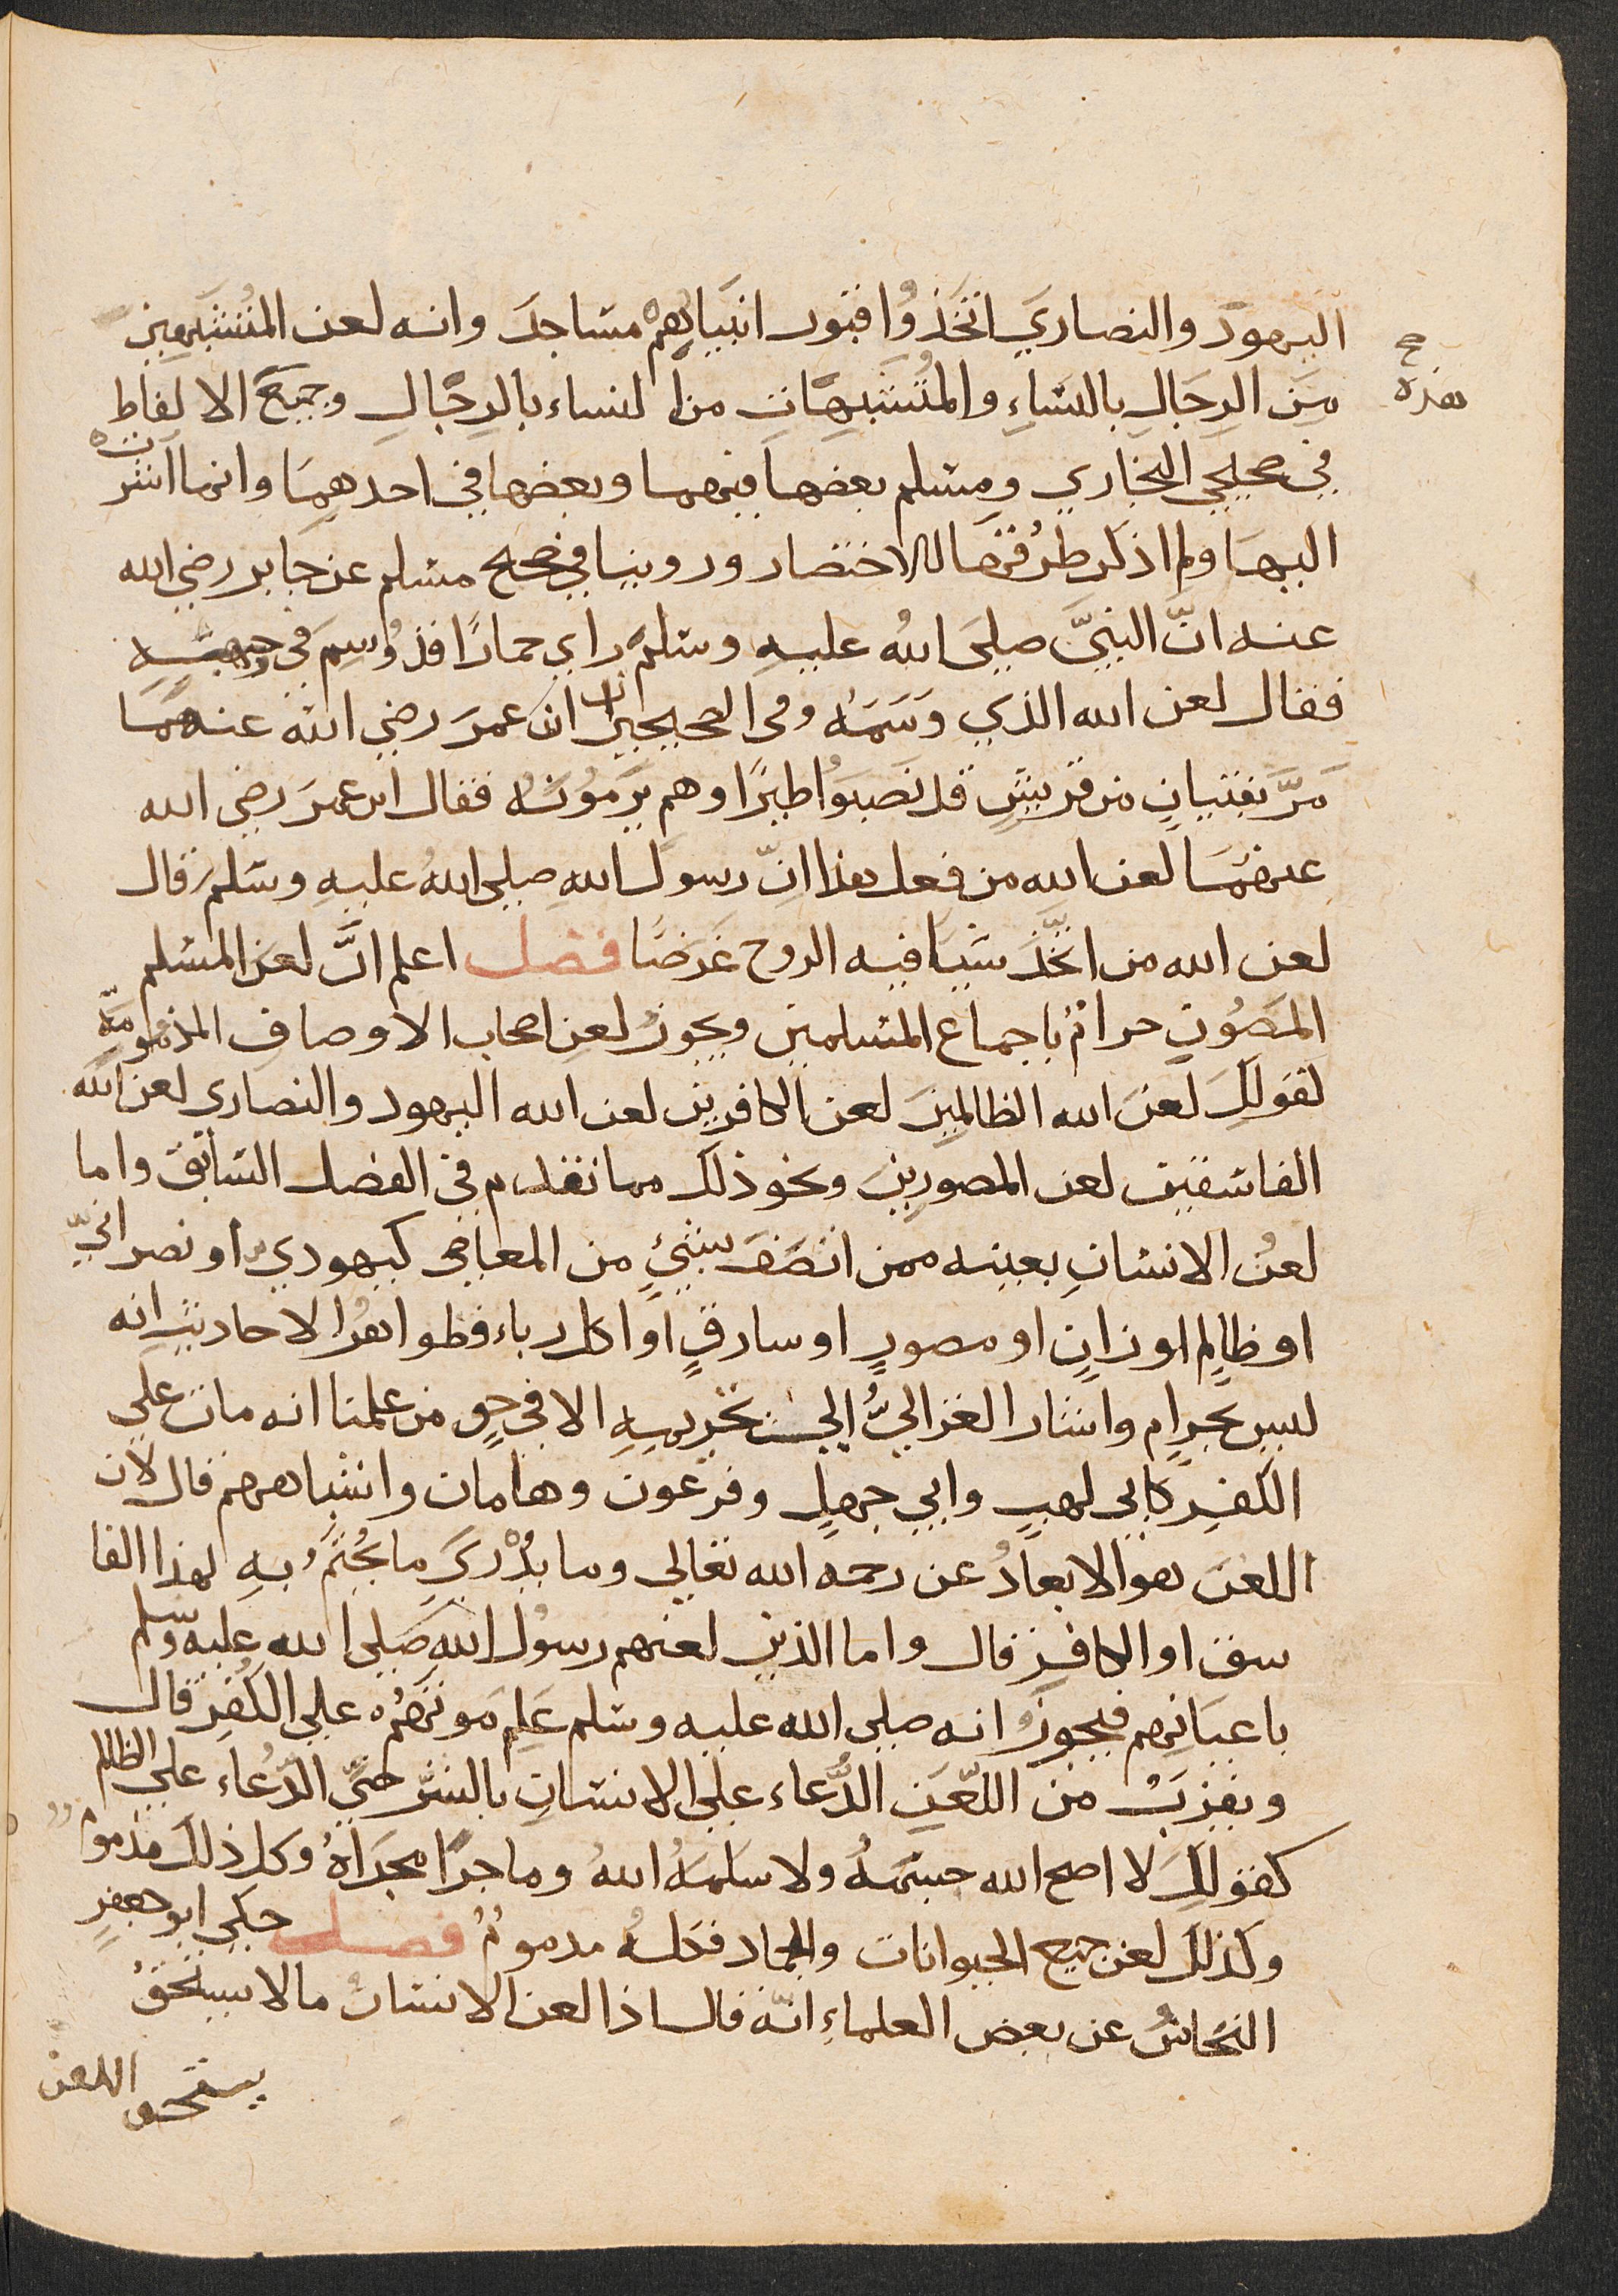 اليهود والنصاري اتخَذُوا قبور انبيائهم مساجدَ وانه لعن المُتشَبِّهين
صح هذه
مِنَ الرِجَالِ بالنسَاءِ والمُتشَبِهَاتِ من النساء بالرِجَالِ وجميعُ الالفاظ
في صحيحي البخاري ومسلم بعضهَا فيهما وبعضها في احدهِمَا وانما اشرت
اليهَا ولم اذكر طرُقهَا للاختصار وروينا في صحيح مسلم عن جابر رضي الله
عنه انّ النبيَّ صلىَ اللهُ عليهِ وسلمَ راي حمارًا قد وُسِمَ في وجههِ
فقال لعن الله الذي وَسَمَهُ وفي الصحيحين ان ابن عمرَ رضي الله عنهمَا
مَرَّ بفتيانٍ من قريشٍ قد نَصَبَوُا طيرًا وهم يرمُونَهُ فقال ابن عمرَ رضي الله
عنهمَا لعن الله من فعل هذا انّ رسولَ اللهِ صلى اللهُ عليهِ وسَلمَ قال
لعن الله من اتّخَذَ شيَا فيه الروح غَرَضًا فصل اعلم انَّ لعنَ المسْلم
المَصُونِ حرامٌ باجماع المسْلمين ويجوزُ لعن اصحاب الاوصاف المذمومَةِ
لقولكَ لَعَنَ الله الظالمِينَ لعن الكافرين لعن الله اليهود والنصاري لعن الله
الفاسقين لعن المصورين ونحو ذلك مما تقدم في الفصل السّابق واما
لعنُ الانسَانِ بعينه ممن اتصَفَ بشئٍ من المعاصي كيهودي او نصرانيّ
او ظالِم او زانٍ او مصورٍ او سارقٍ او اكل رباء فظواهرُ الاحاديث انه
ليس بحرامٍ واشار الغزاليُّ الي تحريمهِ الا في حق من علمنا انه مات علي
الكفرِ كابي لهبٍ وابي جهلٍ وفرعون وهامان واشباههم قال لان
اللعنَ هو الابعادُ عن رحمة الله تعالي وما يدْركَ ما يُختَمُ بهِ لهذا الفا
سق او الكافر قال واما الذين لعنهم رسولُ اللهِ صَلى الله عليه وسلم
باعيَانهم فيجوزُ انه صلى الله عليه وسَلم عَلِم مَوتَهُم علي الكُفرِ قال
ويقربُ من اللّعَنِ الدُّعاء علي الانسَانِ بالشرّ حتّي الدّعاء علي الظالم
كقوللِكَ لا اصح الله جسَمهُ ولا سَلمهُ اللهُ وما جرَا مجرَاهُ وكل ذلك مذموم
وكذلكَ لعن جميع الحيوانات والجماد فكلُهُ مذمومٌ فصل حكي ابو جعفرٍ
النحَاسُ عن بعض العلماءِ انّه قال اذا لعن الانسانُ ما لا يستحقُ
يستحق اللعن